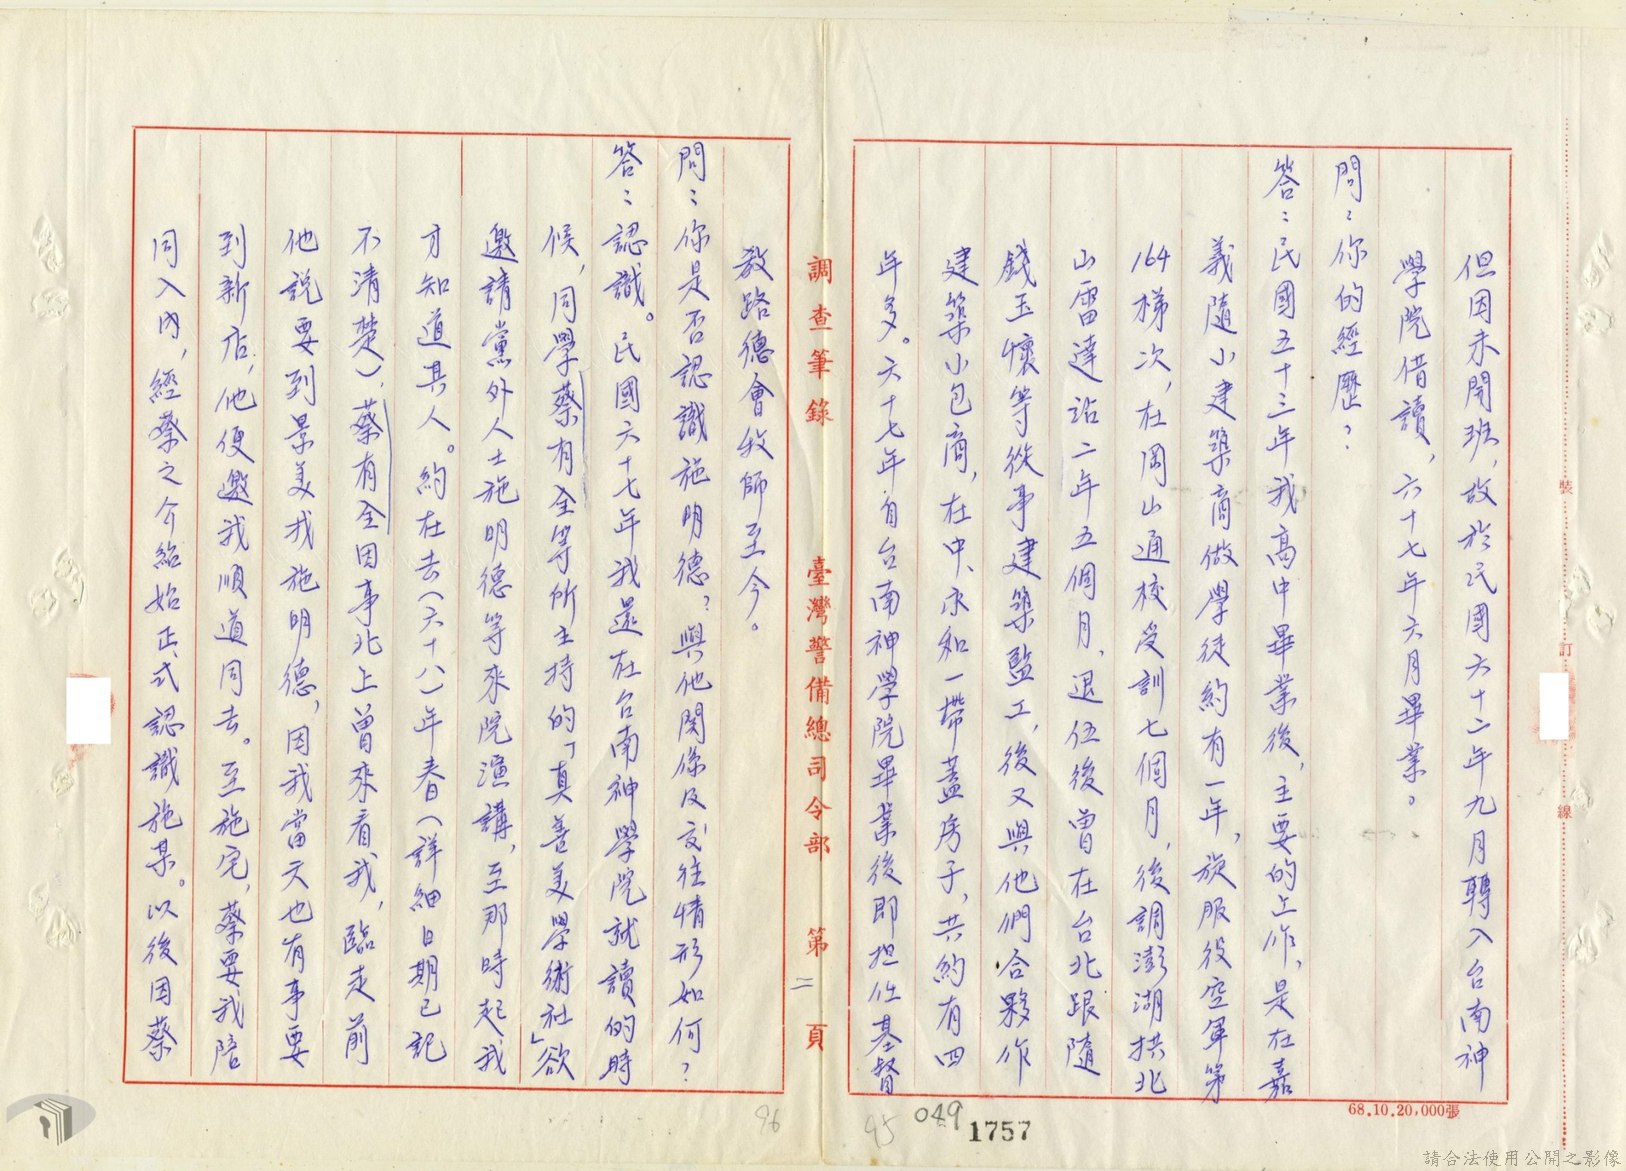 但因未開班，故於民國六十二年九月轉入台南神
學院借讀，六十七年六月畢業。
問：你的經歷？
答：民國五十三年我高中畢業後，主要的工作，是在嘉
義隨小建築商做學徒約有一年，旋服役空軍第
164梯次，在岡山通校受訓七個月，後調澎湖拱北
山雷達站二年五個月，退伍後曾在台北跟隨
錢玉懷等從事建築監工，後又與他們合夥作
建築小包商，在中、永和一帶蓋房子，共約有四
年多。六十七年自台南神學院畢業後即担任基督
調查筆錄 臺灣警備總司令部 第二頁
教路德會牧師至今。
問：你是否認識施明德？與他関係及交往情形如何？
答：認識。民國六十七年我還在台南神學院就讀的時
候，同學蔡有全等所主持的「真善美學術社」欲
邀請黨外人士施明德等來院演講，至那時起我
才知道其人。約在去（六十八）年春（詳細日期已記
不清楚），蔡有全因事北上曾來看我，臨走前
他說要到景美找施明德，因我當天也有事要
到新店，他便邀我順道同去。至施宅，蔡要我陪
同入內，經蔡之介紹始正式認識施某。以後因蔡
裝
訂
線
68.10.20,000張
96
95
049
1757
請合法使用公開之影像